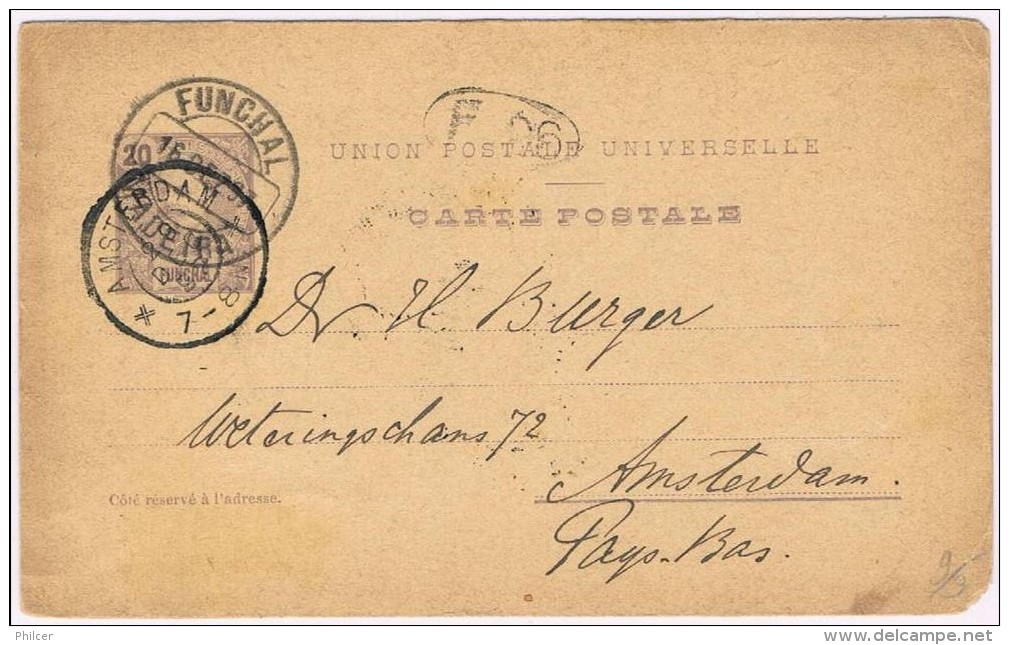 FUNCHAL
20
MADEIRA
FUNCHAL
AMSTERDAM
7-8
UNION POSTALE UNIVERSELLE
CARTE POSTALE
Dr. H. Burger
Weteringschans 72
Amsterdam.
Pays-Bas.
Côté réservé à l'adresse.
Philcer
delcampe.net